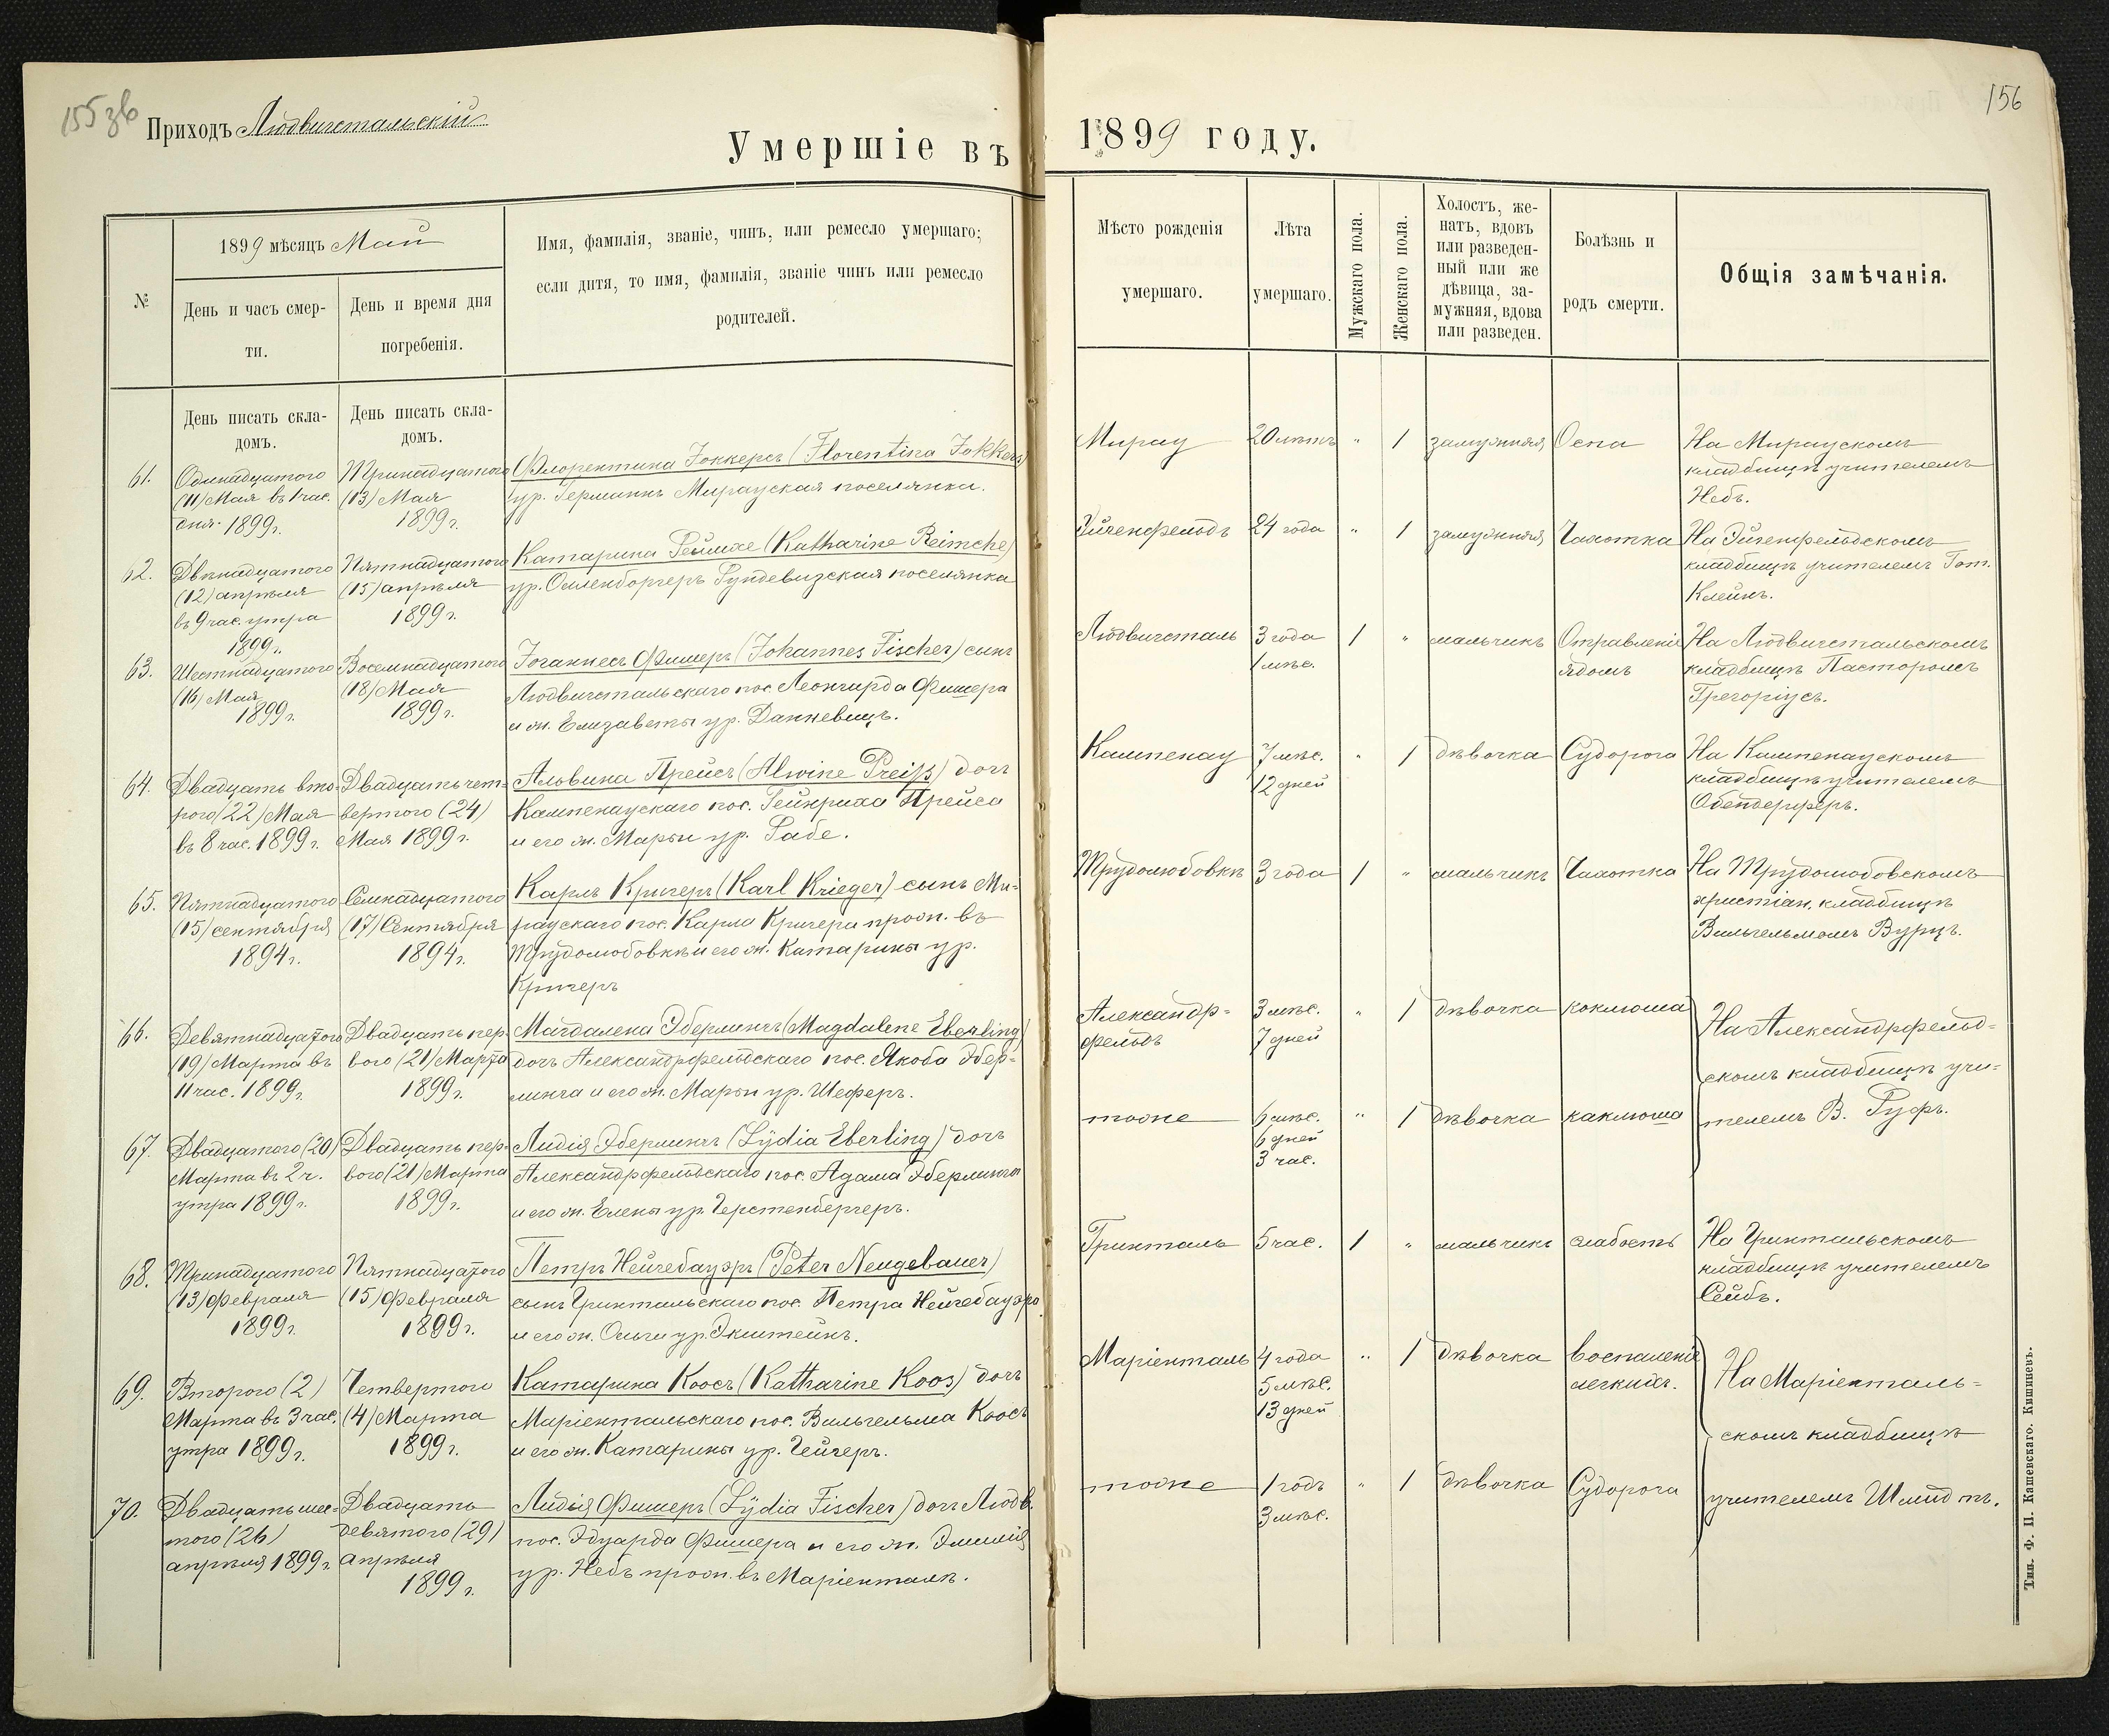 155 зв
Приходъ Людвигстальскій
Умершіе въ
№
1899 мѣсяцъ Май
День и часъ смер-
ти.
День и время дня
погребенія.
Имя, фамилія, званіе, чинъ, или ремесло умершаго;
если дитя, то имя, фамилія, званіе чинъ или ремесло
родителей.
День писать скла-
домъ.
День писать скла-
домъ.
61.
Одинадцатого
(11) Мая въ 1 час.
дня 1899 г.
Тринадцатого
(13) Мая
1899 г.
Флорентина Јоккерсъ (Florentina Jokkers)
ур. Германнъ Мирауская поселянка.
62.
Двѣнадцатого
(12) апрѣля
въ 9 час. утра
1899 г.
Пятнадцатого
(15) апрѣля
1899 г.
Катарина Реймхе (Katharine Reimche)
ур. Фундевизская поселянка
63.
Шестнадцатого
(16) Мая
1899 г.
Восемнадцатого
(18) Мая
1899 г.
Јоганнесъ Фишеръ (Johannes Fischer) сынъ
Людвигстальскаго пос. Леонгарда Фишера
и ж. Елизаветы ур. Данневицъ.
64.
Двадцать вто-
рого (22) Мая
въ 8 час. 1899 г.
Двадцать чет-
вертого (24)
Мая 1899 г.
Альвина Прейсъ (Alwine Preiß) дочь
Кампенаускаго пос. Гейнриха Прейса
и его ж. Марьи ур. Рабе.
65.
Пятнадцатого
(15) сентября
1894 г.
Семнадцатого
(17) Сентября
1894 г.
Карлъ Кригеръ (Karl Krieger) сынъ Ми-
раускаго пос. Карла Кригера прож. въ
Трудолюбовкѣ и его ж. Катарины ур.
Кригеръ
66.
Девятнадцатого
(19) Марта въ
11 час. 1899 г.
Двадцать пер-
вого (21) Марта
1899 г.
Магдалена Эберлингъ (Magdalene Eberling)
дочь Александрфельдскаго пос. Якоба Эбер-
линга и его ж. Марьи ур. Шеферъ.
67.
Двадцатого (20)
Марта въ 2 ч.
утра 1899 г.
Двадцать пер-
вого (21) Марта
1899 г.
Лидія Эберлингъ (Lydia Eberling) дочь
Александрфельдскаго пос. Адама Эберлинга
и его ж. Елены ур. Герстенбергеръ.
68.
Тринадцатого
(13) Февраля
1899 г.
Пятнадцатого
(15) Февраля
1899 г.
Петръ Нейгебауэръ (Peter Neugebauer)
сынъ Гринтальскаго пос. Петра Нейгебауэра
и его ж. Ольги ур. Экштейнъ.
69.
Второго (2)
Марта въ 3 час.
утра 1899 г.
Четвертого
(4) Марта
1899 г.
Катарина Коосъ (Katharine Koos) дочь
Маріентальскаго пос. Вильгельма Коосъ
и его ж. Катарины ур. Гейгеръ.
70.
Двадцать шес-
того (26)
апрѣля 1899 г.
Двадцать
девятого (29)
апрѣля
1899 г.
Лидія Фишеръ (Lydia Fischer) дочь Людв.
пос. Эдуарда Фишера и его ж. Эмилія
ур. Небъ прож. въ Маріенталѣ.
156
1899 году.
Мѣсто рожденія
умершаго.
Лѣта
умершаго.
Мужскаго пола.
Женскаго пола.
Холостъ, же-
натъ, вдовъ
или разведен-
ный или же
дѣвица, за-
мужняя, вдова
или разведен.
Болѣзнь и
родъ смерти.
Общія замѣчанія.
Мирау
20 лѣтъ
"
1
замужняя
Оспа
На Мирускомъ
кладбищѣ учителемъ
Небъ.
Эйгенфельдъ
24 года
"
1
замужняя
Чахотка
На Эйгенфельдскомъ
кладбищѣ учителемъ Гот.
Клейнъ.
Людвигсталь
3 года
1 мѣс.
1
"
мальчикъ
Отравленіе
ядомъ
На Людвигстальскомъ
кладбищѣ Пасторомъ
Грегоріусъ.
Кампенау
7 мѣс.
12 дней
"
1
дѣвочка
Судорога
На Кампенаускомъ
кладбищѣ учителемъ
Обендерферъ.
Трудолюбовкѣ
3 года
1
"
мальчикъ
Чахотка
На Трудолюбовскомъ
христіан. кладбищѣ
Вильгельмомъ Вурцъ.
Александр-
фельдъ
3 мѣс.
7 дней
"
1
дѣвочка
коклюша
На Александрфельд-
скомъ кладбищѣ учи-
телемъ В. Руфъ.
тоже
6 мѣс.
6 дней
3 час.
"
1
дѣвочка
каклюша
Гринталь
5 час.
1
"
мальчикъ
слабость
На Гринтальскомъ
кладбищѣ учителемъ
Сейбъ.
Маріенталь
4 года
5 мѣс.
13 дней
"
1
дѣвочка
воспаленіе
легкихъ.
На Маріенталь-
скомъ кладбищѣ
учителемъ Шмидтъ.
тоже
1 годъ
3 мѣс.
"
1
дѣвочка
Судорога
Тип. Ф. П. Кашевскаго. Кишиневъ.